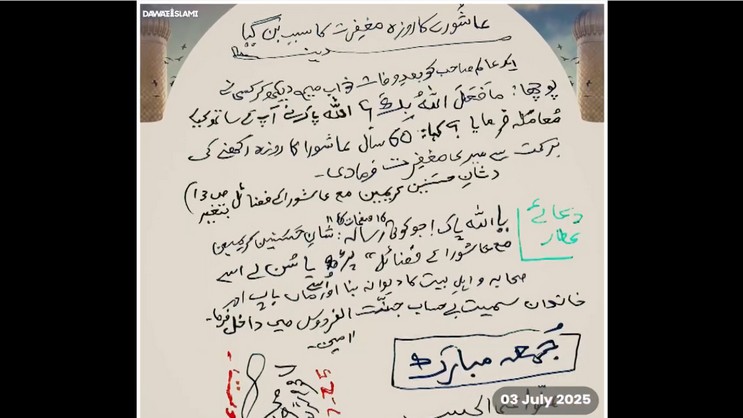 DAWATEISLAMI
عاشورے کا روزہ مغفرت کا سبب بن گیا
ایک عالم صاحب کو بعدِ وفات خواب میں دیکھ کر کسی نے
پوچھا: مَا فَعَلَ اللهُ بِكَ؟ اللہ پاک نے آپ کے ساتھ کیا
مُعاملہ فرمایا؟ کہا: 60 سال عاشورا کا روزہ رکھنے کی
برکت سے میری مغفرت فرما دی۔
(شانِ حَسَنین کریمین مع عاشورا کے فضائل ص 13 بتغیر)
دعائے
عطار
یا اللہ پاک! جو کوئی 16 صفحات کا رسالہ: "شانِ حَسَنین کریمین
مع عاشورا کے فضائل" پڑھ یا سُن لے اسے
صحابہ و اہلِ بیت کا دیوانہ بنا اور اُسے ماں باپ اور
خاندان سمیت بے حساب جنّت الفردوس میں داخل فرما۔
امین۔
جُمعہ مبارک
03 July 2025